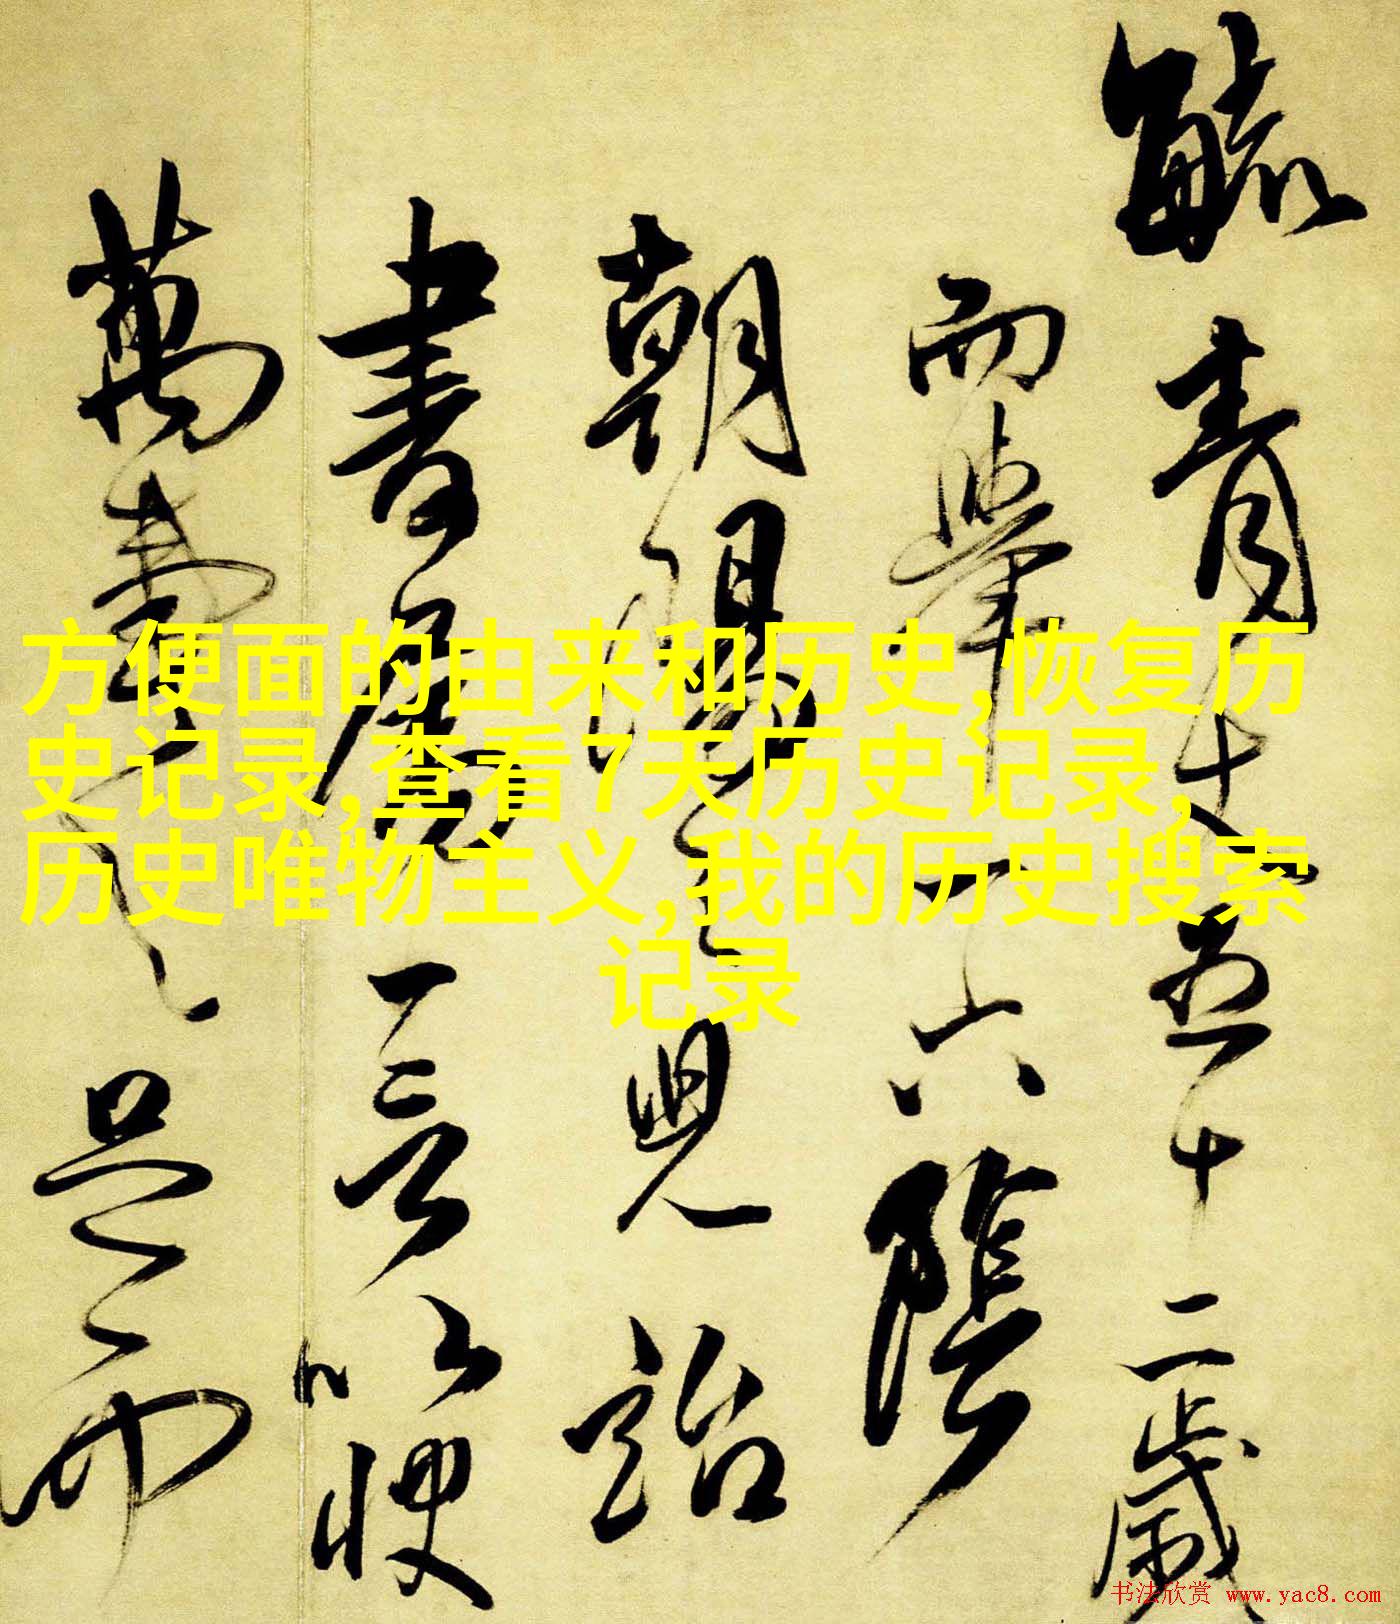 毓青年五十二歲
而舉
六陰
朝陽
見詒
書屋
一言以
萬
是而
方便面的由来和历史,恢复历
史记录,查看7天历史记录,
历史唯物主义,我的历史搜索
记录
书法欣赏 www.yac8.com